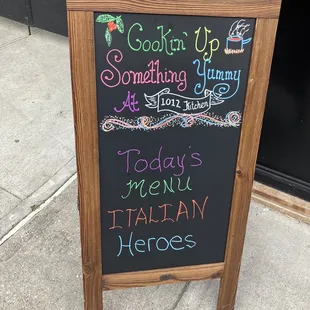 Cookin' Up
Something Yummy
At 1012 Kitchen
Today's
MENU
ITALIAN
Heroes